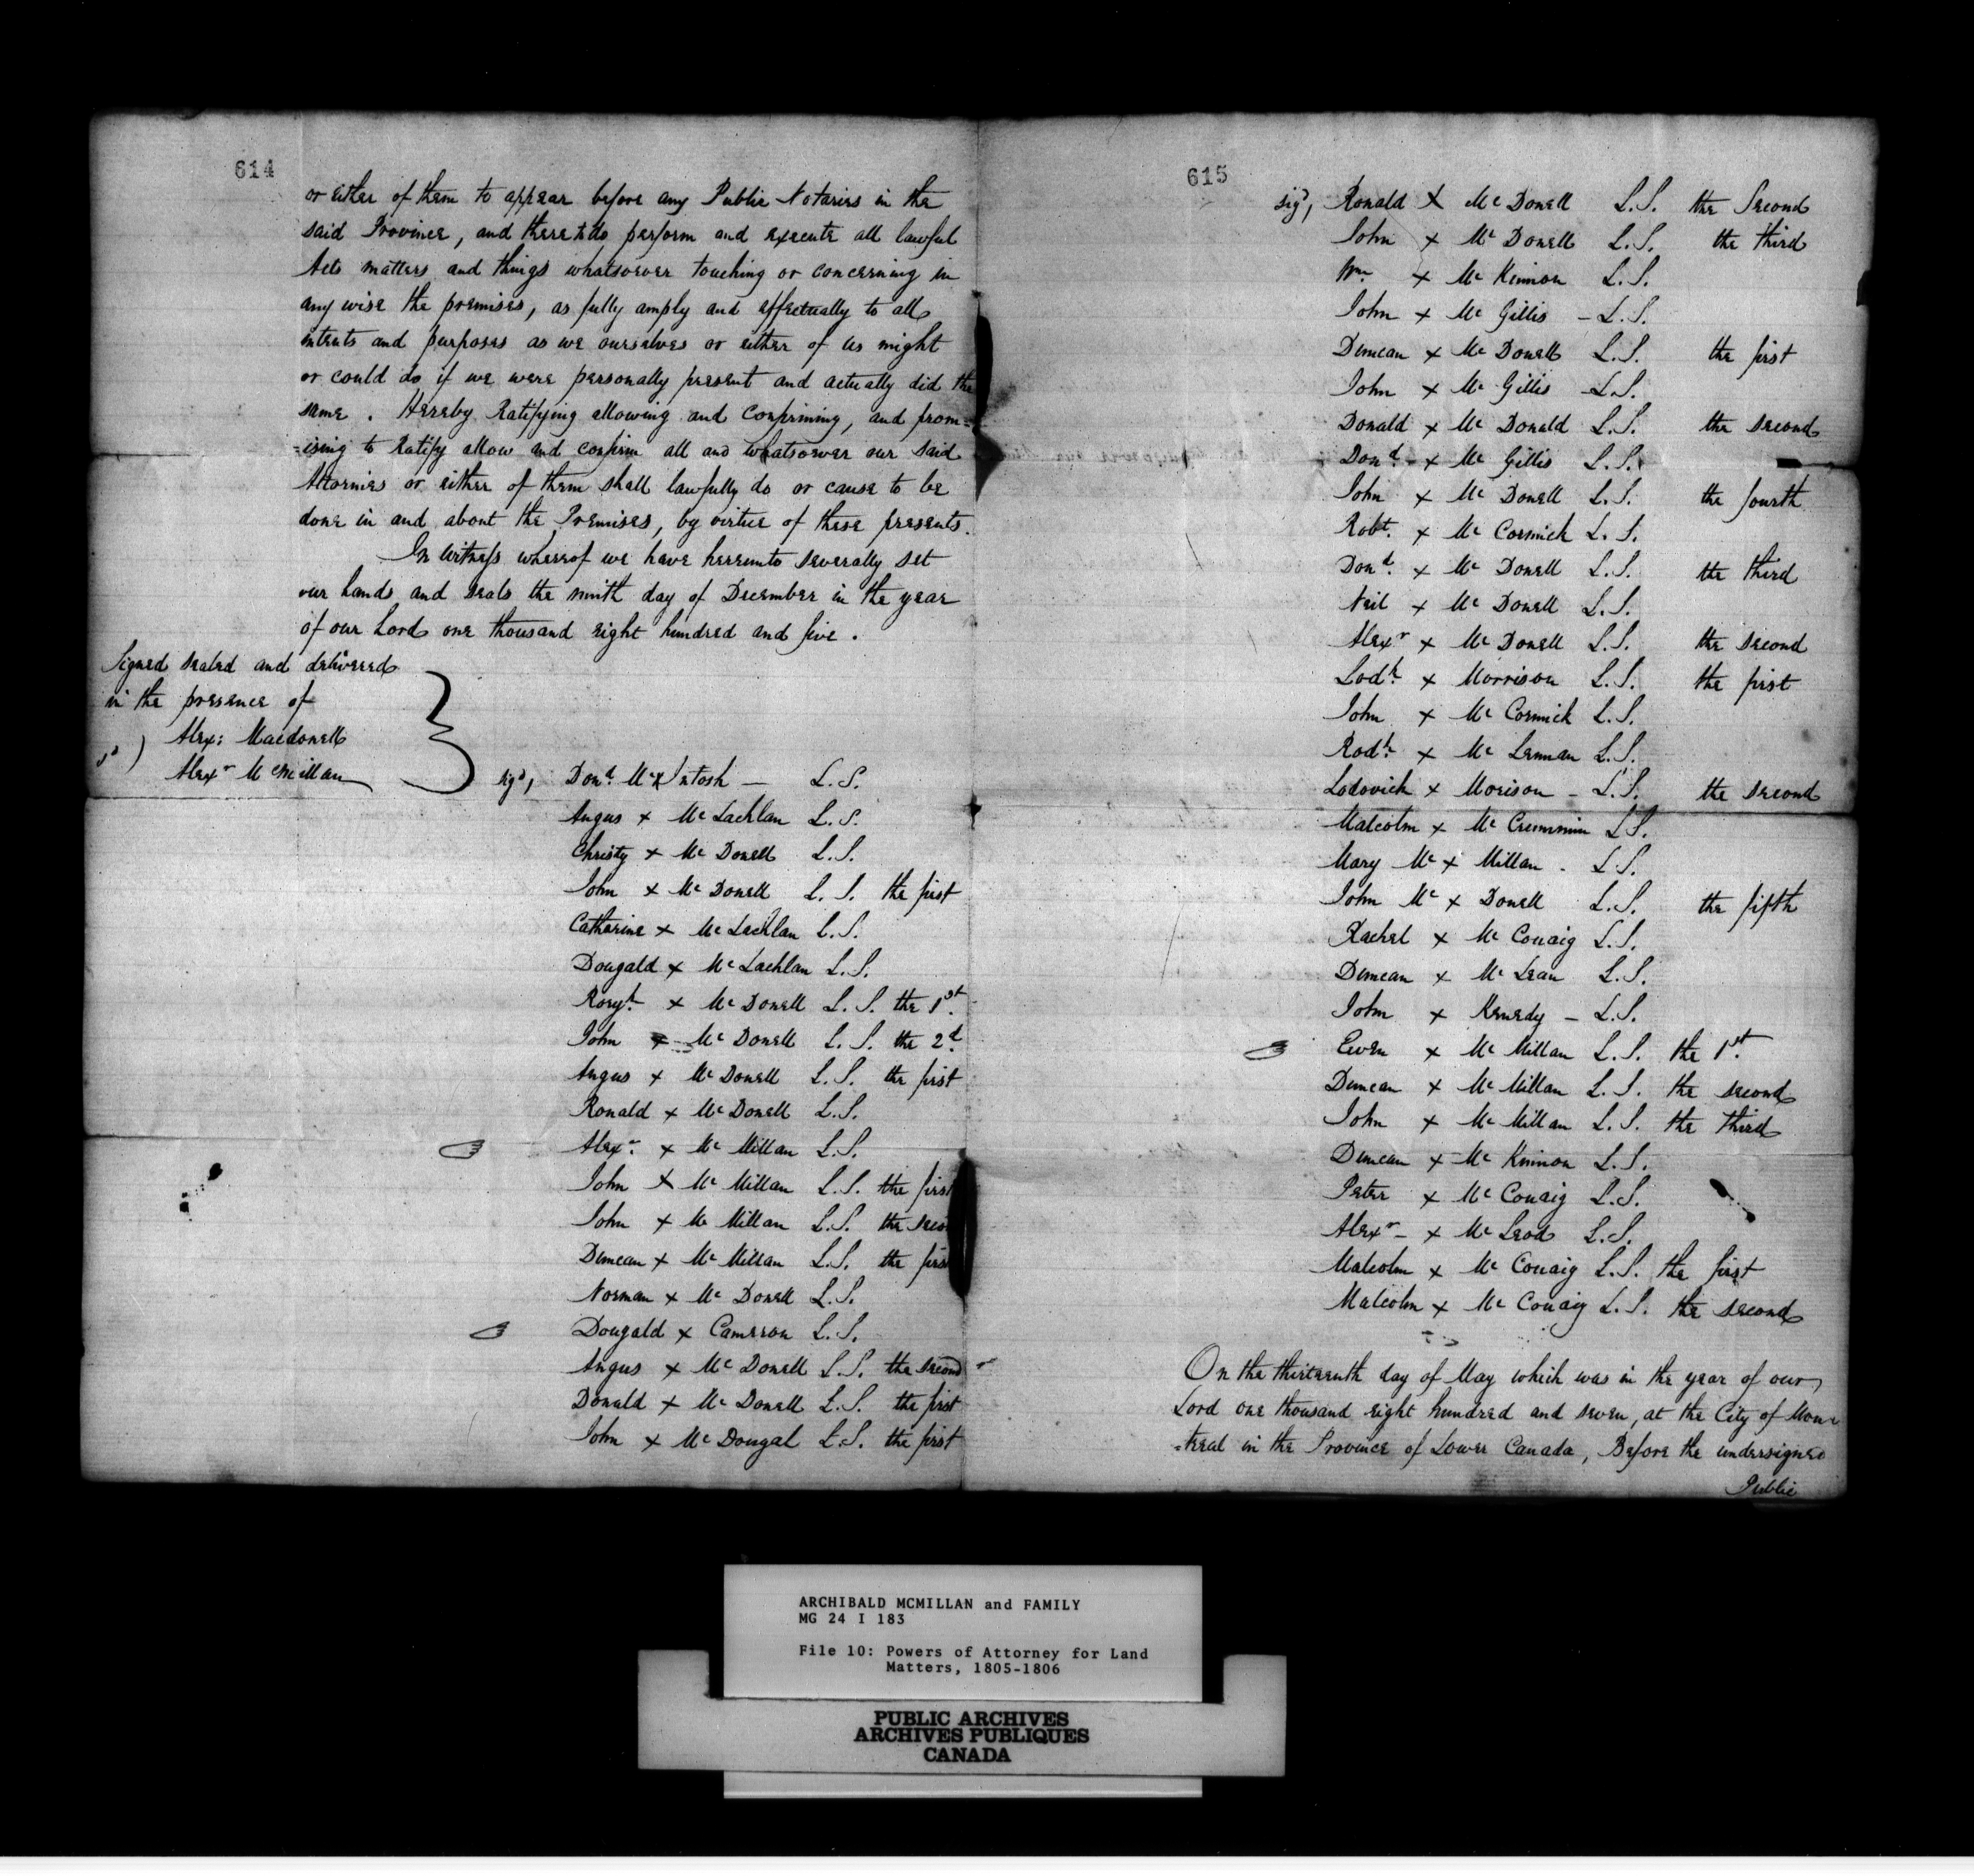 614
or either of them to appear before any Public Notaries in the
said Province, and there to do perform and execute all lawful
Acts matters and things whatsoever touching or concerning in
any wise the premises, as fully amply and effectually to all
intents and purposes as we ourselves or either of us might
or could do if we were personally present and actually did the
same . Hereby Ratifying allowing and confirming, and prom=
=ising to Ratify allow and confirm all and whatsoever our said
Attornies or either of them shall lawfully do or cause to be
done in and about the Premises, by virtue of these presents.
In Witness whereof we have hereunto severally set
our hands and seals the ninth day of December in the year
of our Lord one thousand eight hundred and five .
Signed sealed and delivered
in the presence of
Alex: Macdonell
Alexr McMillan
sigd, Dond. Mc x Intosh — L.S.
Angus x Mc Lachlan L.S.
Christy x Mc Donell L.S.
John x Mc Donell L.S. the first
Catharine x Mc Lachlan L.S.
Dougald x Mc Lachlan L.S.
Roryh. x Mc Donell L.S. the 1st.
John x Mc Donell L.S. the 2d.
Angus x Mc Donell L.S. the first
Ronald x Mc Donell L.S.
Alexr. x Mc Millan L.S.
John x Mc Millan L.S. the first
John x Mc Millan L.S. the seco
Duncan x Mc Millan L.S. the first
Norman x Mc Donell L.S.
Dougald x Cameron L.S.
Angus x Mc Donell L.S. the second
Donald x Mc Donell L.S. the first
John x Mc Dougal L.S. the first
615
sigd, Ronald x Mc Donell L.S. the Second
John x Mc Donell L.S. the third
Wm. x Mc Kinnon L.S.
John x Mc Gillis – L.S.
Duncan x Mc Donell L.S. the first
John x Mc Gillis – L.S.
Donald x Mc Donald L.S. the second
Dond. x Mc Gillis L.S.
John x Mc Donell L.S. the fourth
Robt. x Mc Cormick L.S.
Dond. x Mc Donell L.S. the third
Neil x Mc Donell L.S.
Alexr x Mc Donell L.S. the second
Lodk. x Morrison L.S. the first
John x Mc Cormick L.S.
Rodk. x Mc Lennan L.S.
Lodovick x Morison – L.S. the second
Malcolm x Mc Cremmin L.S.
Mary Mc x Millan . L.S.
John Mc x Donell L.S. the fifth
Rachel x Mc Couaig L.S.
Duncan x Mc Lean L.S.
John x Kenedy – L.S.
Ewen x Mc Millan L.S. the 1st.
Duncan x Mc Millan L.S. the second
John x Mc Millan L.S. the third
Duncan x Mc Kinnon L.S.
Peter x Mc Couaig L.S.
Alexr – x Mc Leod L.S.
Malcolm x Mc Couaig L.S. the first
Malcolm x Mc Couaig L.S. the second
On the thirteenth day of May which was in the year of our
Lord one thousand eight hundred and seven, at the City of Mon=
=treal in the Province of Lower Canada, Before the undersigned
Public
ARCHIBALD MCMILLAN and FAMILY
MG 24 I 183
File 10: Powers of Attorney for Land
Matters, 1805-1806
PUBLIC ARCHIVES
ARCHIVES PUBLIQUES
CANADA